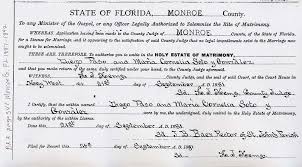 STATE OF FLORIDA, MONROE County.
To any Minister of the Gospel, or any Officer Legally Authorized to Solemnize the Rite of Matrimony.
WHEREAS Application having been made to the County Judge of MONROE County,
of Florida, for a License for Marriage, and it appearing to the satisfaction of said County Judge that no legal impediments exist to the Marriage now
sought to be solemnized.
THESE ARE, THEREFORE To authorize you to unite in the HOLY ESTATE OF MATRIMONY,
Diego Paso and Maria Cornelia Soto y González
and that you make return of the same duly certified under your hand, to the County Judge aforesaid.
Witness my name as County Judge, and the seal of said Court, at the Court House in
Key West this 21st day of September A.D. 1891
County Judge.
I Certify that the within named Diego Paso and Maria Cornelia Soto y
González were by me, the undersigned, duly united in the Holy Estate of Matrimony,
by the authority of the within License.
Done this 21st day of September A.D. 1891
Rector of St. John's Parish
Filed for Record this day of September A.D. 1891
County Judge.